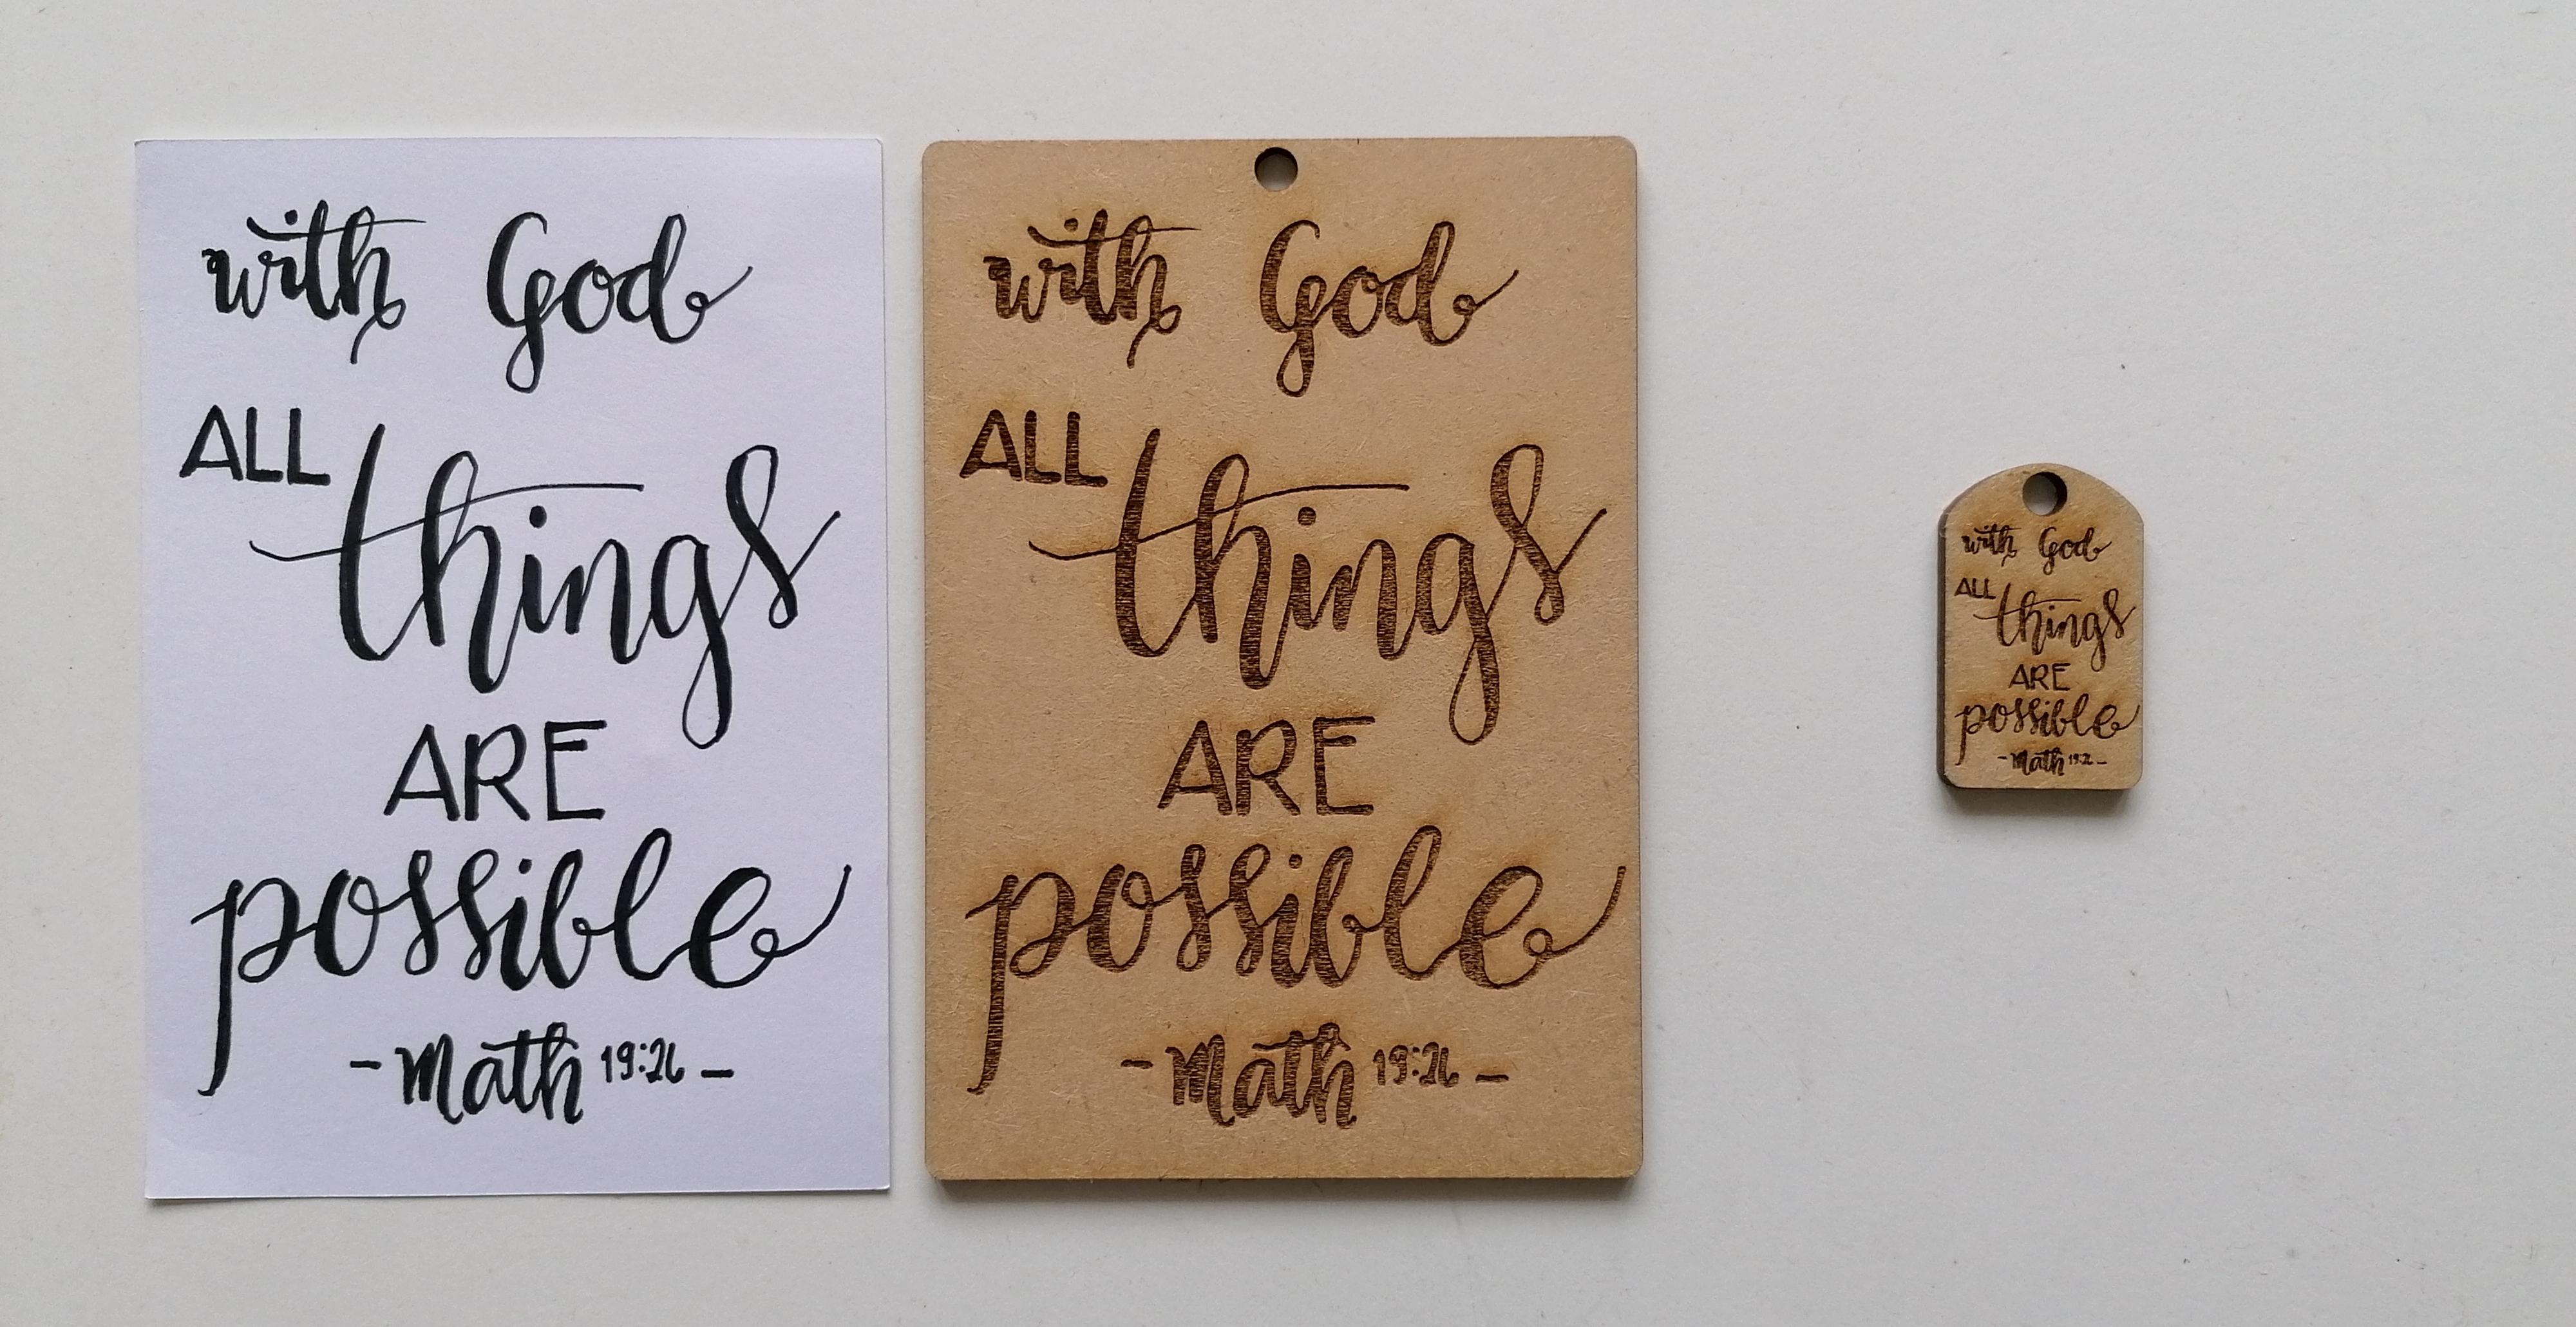 with God
ALL things
ARE
possible
- Math 19:26 -
with God
ALL things
ARE
possible
- Math 19:26 -
with God
ALL things
ARE
possible
- Math 19:26 -